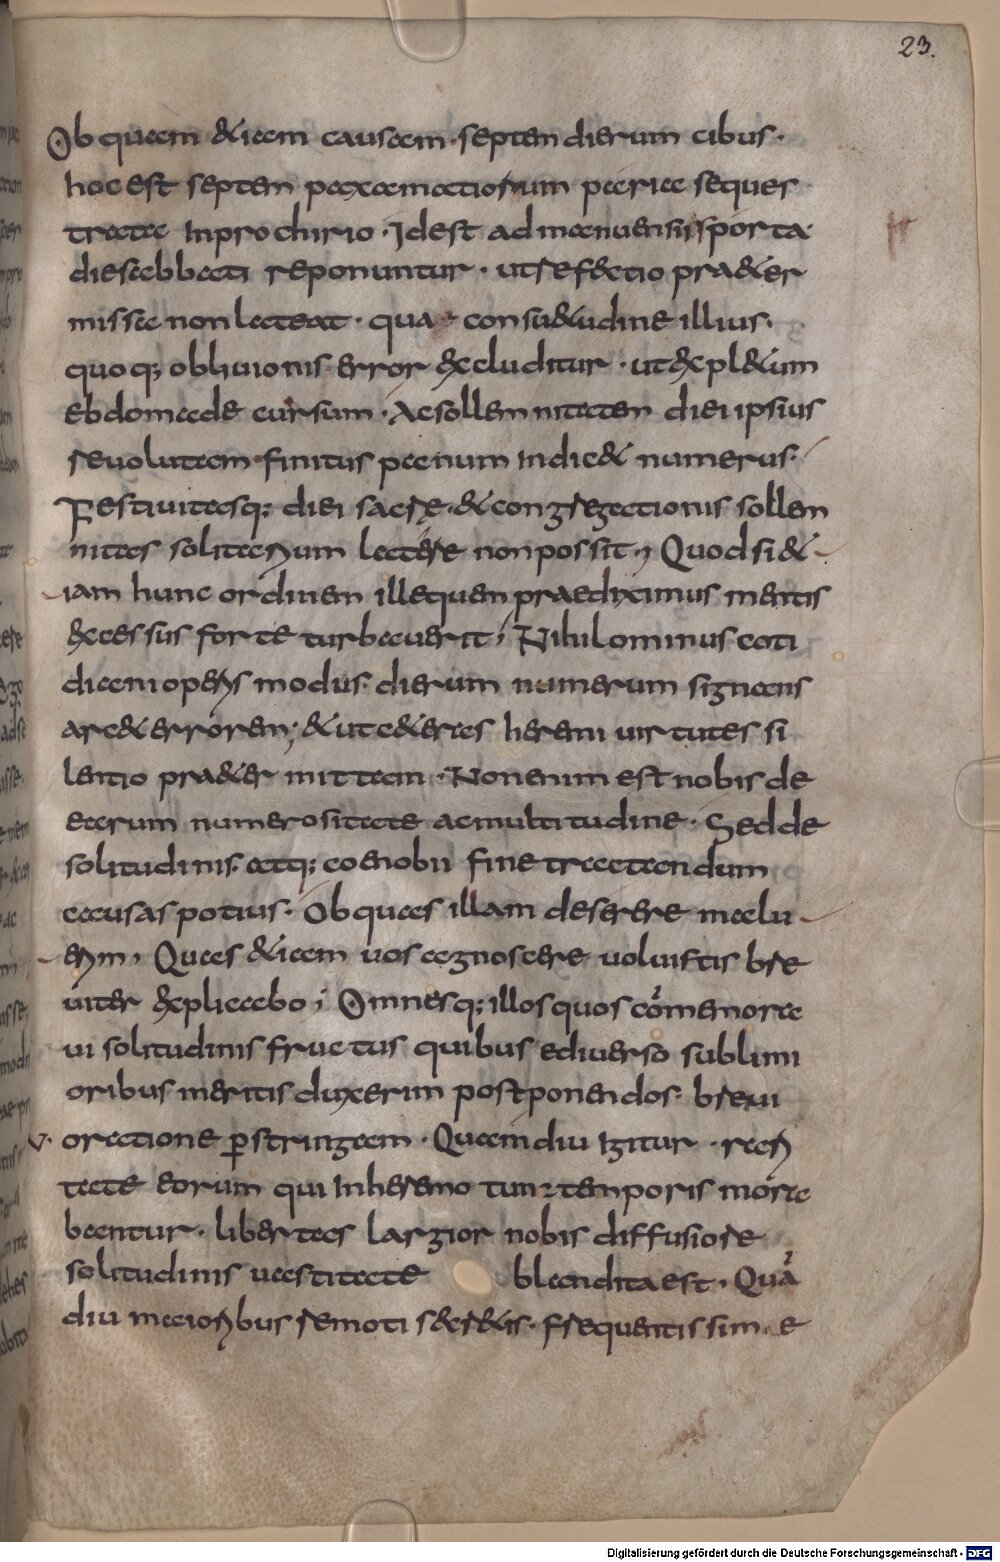 23.
Ob quam &iam causam · septem dierum cibus ·
hoc est septem paxamatiorum paria seques
trata Inprochirio · Idest admanuensi sporta
diesabbati reponuntur · utrefectio pra&er
missa non lateat · qua consu&udine illius ·
quoq; obliuionis error excluditur · ut expl&um
ebdomade cursum · Ac sollemnitatem diei ipsius
reuolutam finitus panum Indic& numerus ·
Festiuitasq; diei sacrę · &congregationis sollem
nitas solitarium latere non possit; Quodsi &
iam hunc ordinem illequem praediximus mentis
excessus forte turbauerit; Nihilominus coti
diani operis modus · dierum numerum signans
arc& errorem; &ut c&eras heremi uirtutes si
lentio pra&er mittam · Non enim est nobis de
earum numerositate ac multitudine · Sed de
solitudinis · atq; coenobii fine tractandum
causas potius · Ob quas illam deserere malu
erim, Quas &iam uos agnoscere uoluistis bre
uiter explicabo; Omnesq; illos quos cōmemora
ui solitudinis fructus quibus ediuerso sublimi
oribus meritis duxerim postponendos · breui
V · oratione ꝑstringam · Quamdiu Igitur · rari
tate eorum qui Inheremo tunc temporis mora
bantur · libertas largior nobis diffusiore
solitudinis uastitate blandita est, Quā
diu maioribus remoti secr&is · frequentissime